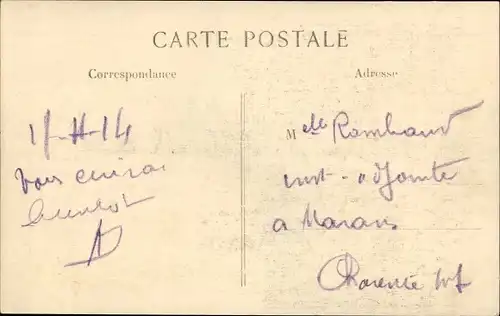 CARTE POSTALE
Correspondance
Adresse
14
Vous
bientôt
Melle Rambaud
inst. adjointe
a Marans
Charente Inf